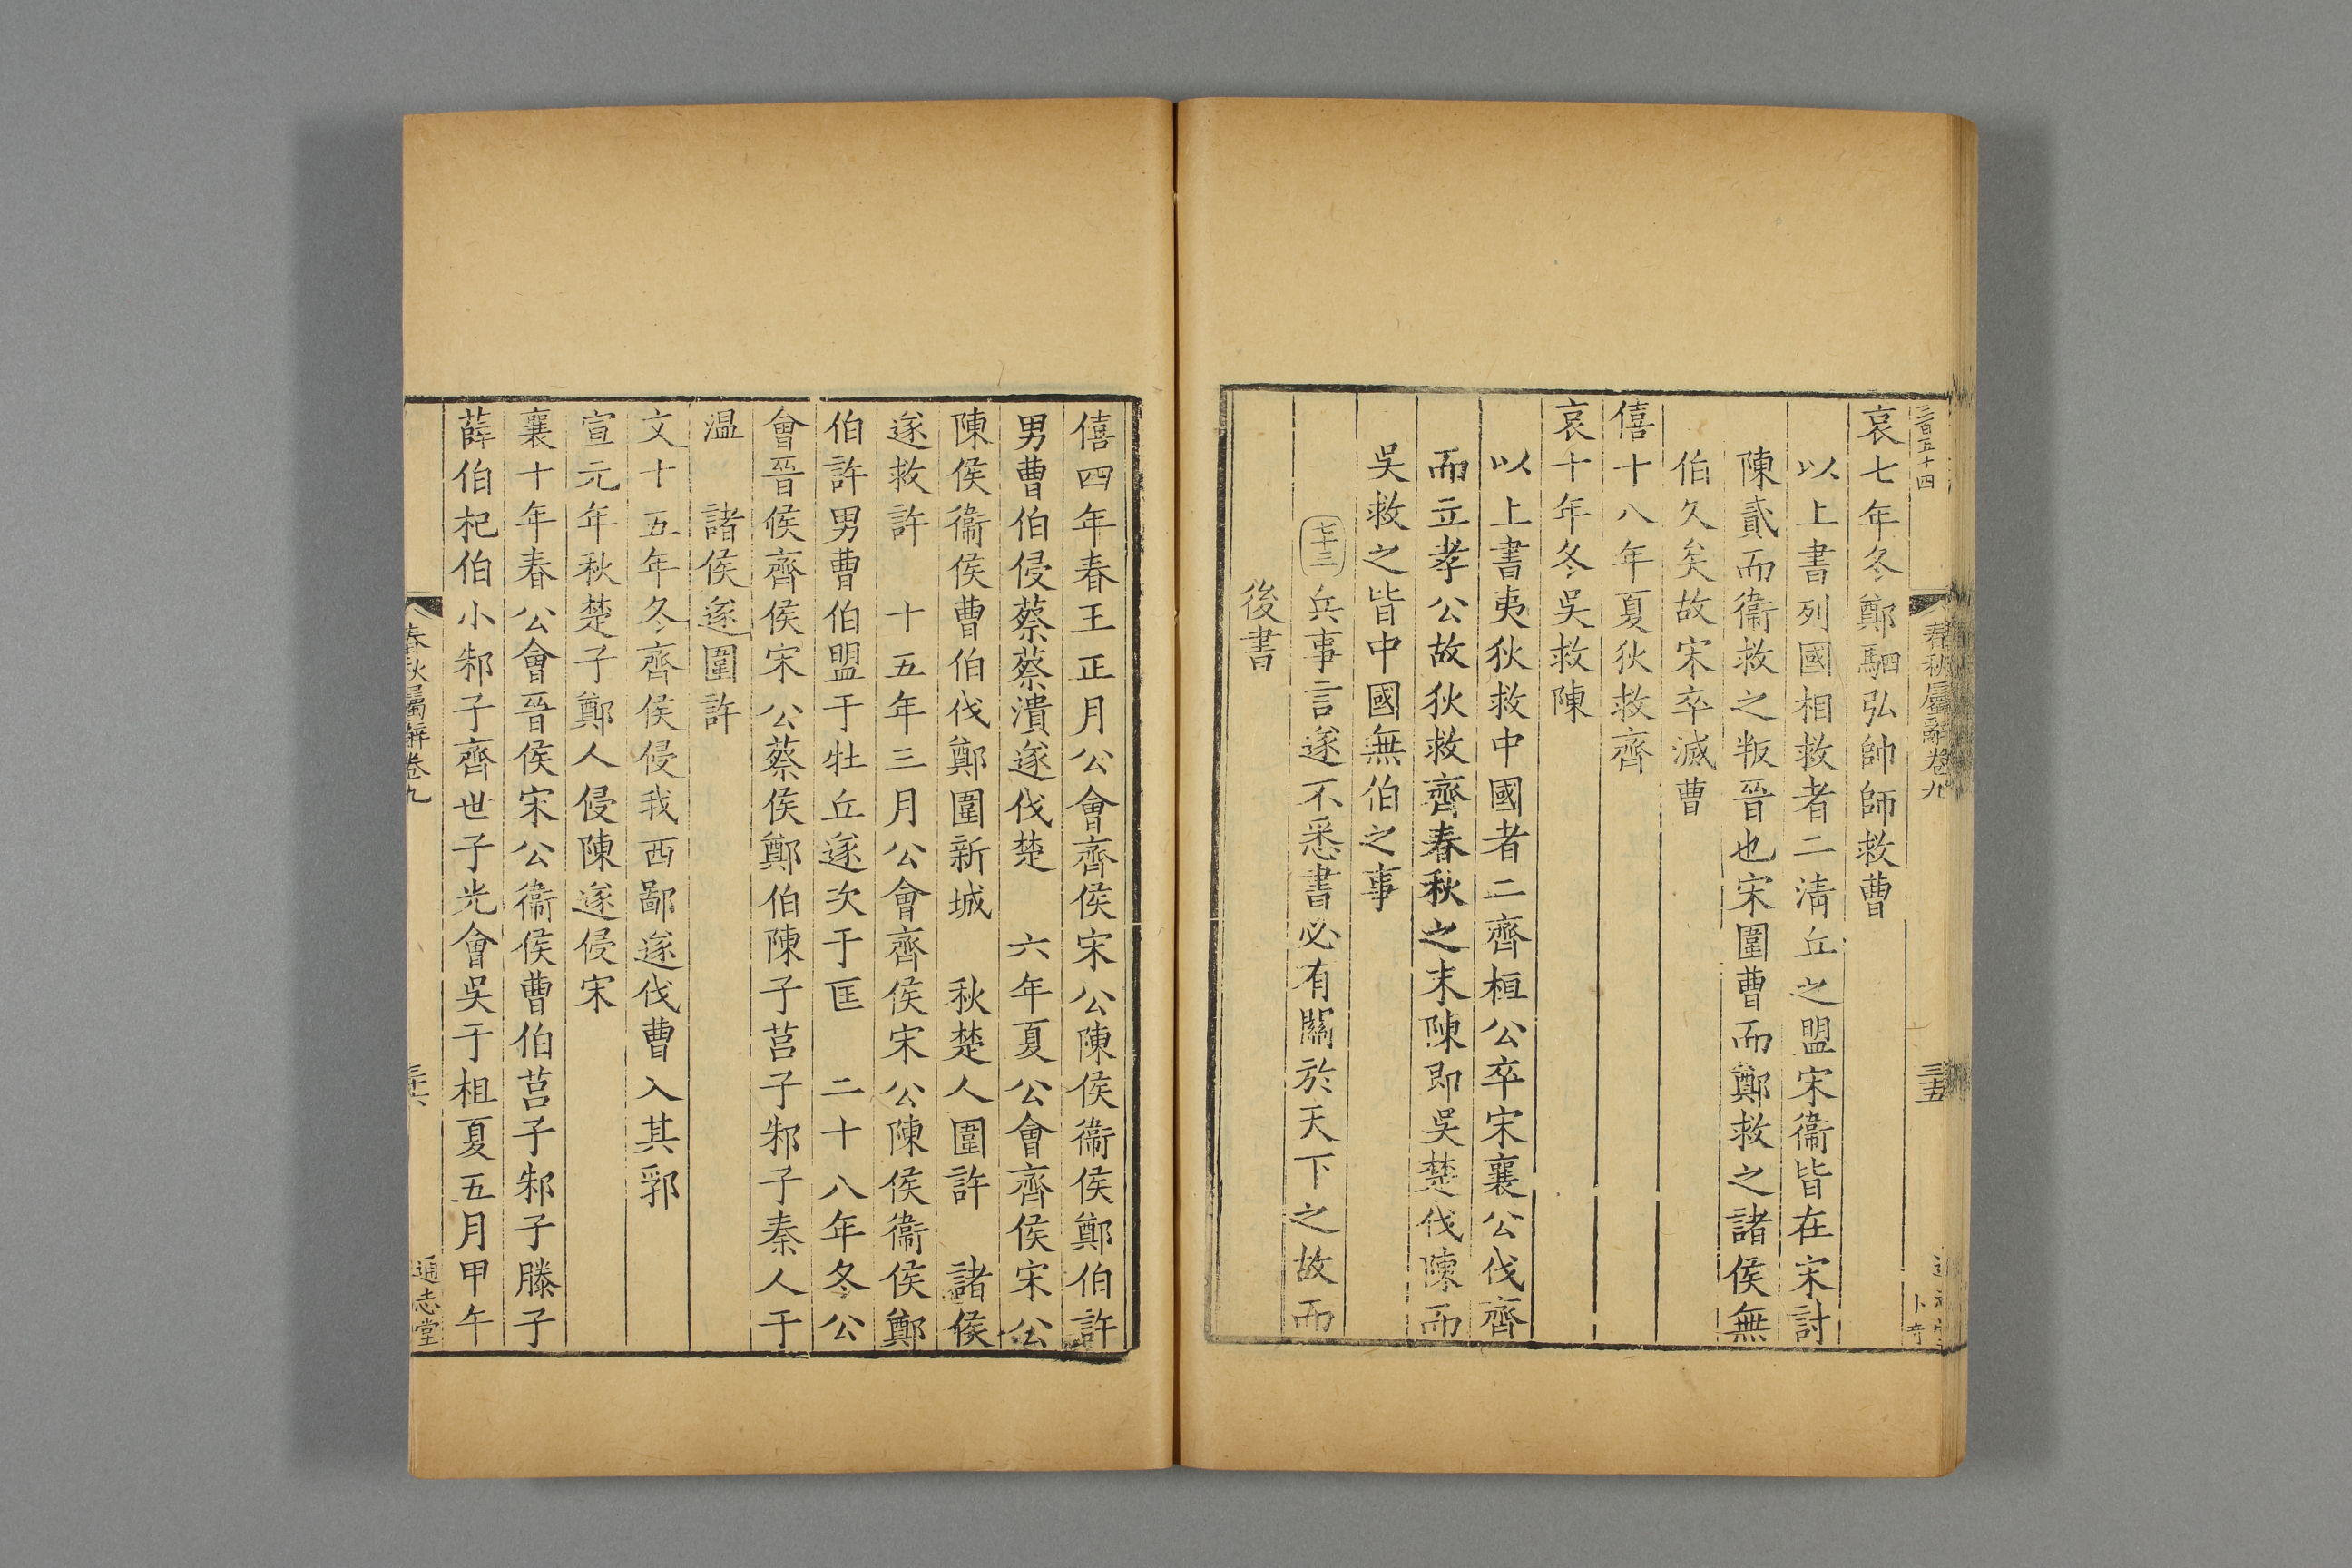 三百五十四
春秋屬辭卷九
三五
哀七年冬鄭駟弘帥師救曹
以上書列國相救者二淸丘之盟宋衞皆在宋討
陳貳而衞救之叛晉也宋圍曹而鄭救之諸侯無
伯久矣故宋卒滅曹
僖十八年夏狄救齊
哀十年冬吳救陳
以上書夷狄救中國者二齊桓公卒宋襄公伐齊
而立孝公故狄救齊春秋之末陳即吳楚伐陳而
吳救之皆中國無伯之事
七十三兵事言遂不悉書必有關於天下之故而
後書
僖四年春王正月公會齊侯宋公陳侯衞侯鄭伯許
男曹伯侵蔡蔡潰遂伐楚　六年夏公會齊侯宋公
陳侯衞侯曹伯伐鄭圍新城　秋楚人圍許　諸侯
遂救許　十五年三月公會齊侯宋公陳侯衞侯鄭
伯許男曹伯盟于牡丘遂次于匡　二十八年冬公
會晉侯齊侯宋公蔡侯鄭伯陳子莒子邾子秦人于
溫　諸侯遂圍許
文十五年冬齊侯侵我西鄙遂伐曹入其郛
宣元年秋楚子鄭人侵陳遂侵宋
襄十年春公會晉侯宋公衞侯曹伯莒子邾子滕子
薛伯杞伯小邾子齊世子光會吳于柤夏五月甲午
春秋屬辭卷九
三六
通志堂